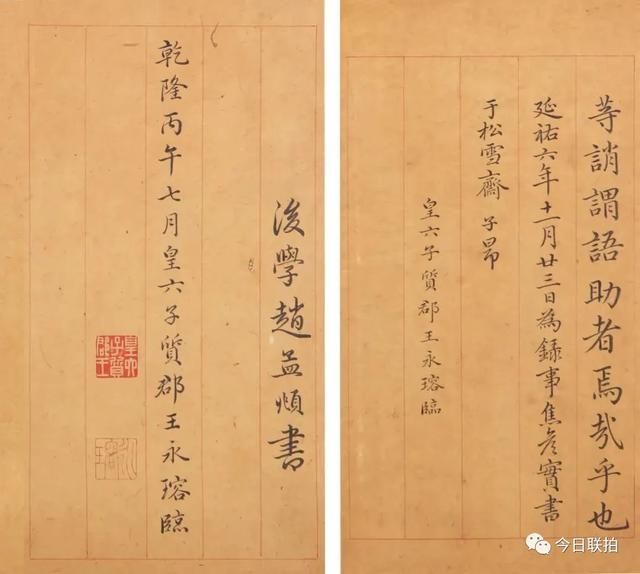 等誚謂語助者焉哉乎也
延祐六年十一月廿三日為録事焦彦實書
于松雪齋 子昂
皇六子質郡王永瑢臨
後學趙孟頫書
乾隆丙午七月皇六子質郡王永瑢臨
皇六
子質
郡王
今日联拍